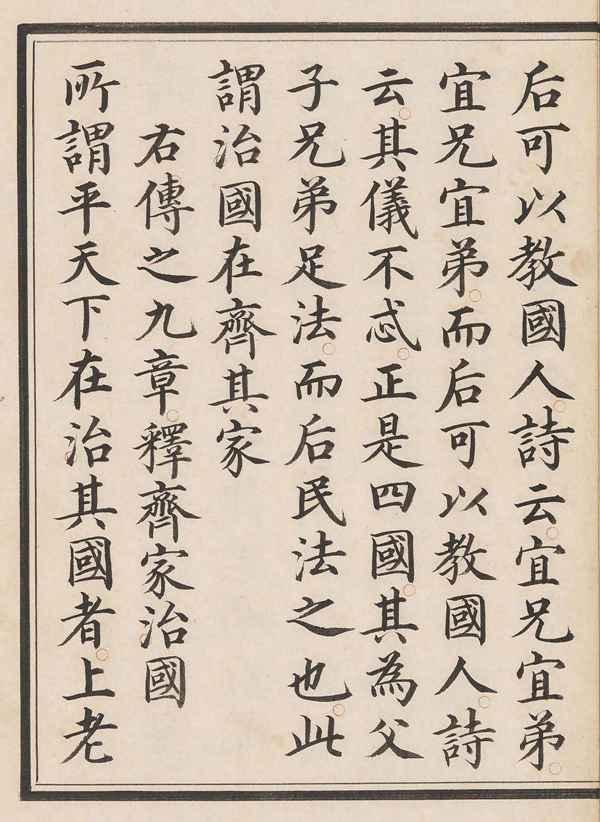 后可以教國人。詩云。宜兄宜弟。
宜兄宜弟。而后可以教國人。詩
云。其儀不忒。正是四國。其為父
子兄弟足法。而后民法之也。此
謂治國在齊其家
右傳之九章。釋齊家治國
所謂平天下在治其國者。上老